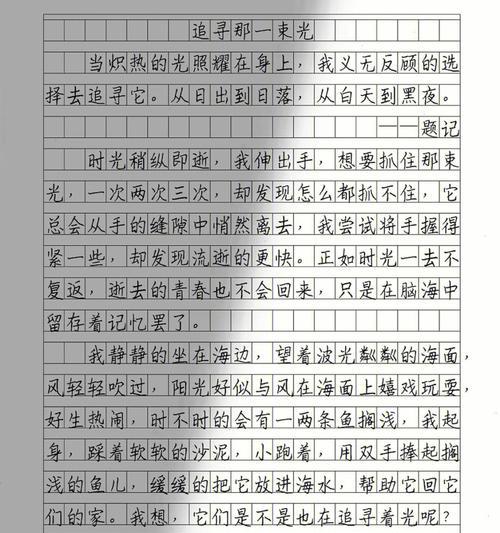 追寻那一束光
当炽热的光照耀在身上，我义无反顾的选
择去追寻它。从日出到日落，从白天到黑夜。
——题记
时光稍纵即逝，我伸出手，想要抓住那束
光，一次两次三次，却发现怎么都抓不住，它
总会从手的缝隙中悄然离去，我尝试将手握得
紧一些，却发现流逝的更快。正如时光一去不
复返，逝去的青春也不会回来，只是在脑海中
留存着记忆罢了。
我静静的坐在海边，望着波光粼粼的海面，
风轻轻吹过，阳光好似与风在海面上嬉戏玩耍，
好生热闹，时不时的会有一两条鱼搁浅，我起
身，踩着软软的沙泥，小跑着，用双手捧起搁
浅的鱼儿，缓缓的把它放进海水，帮助它回它
们的家。我想，它们是不是也在追寻着光呢？